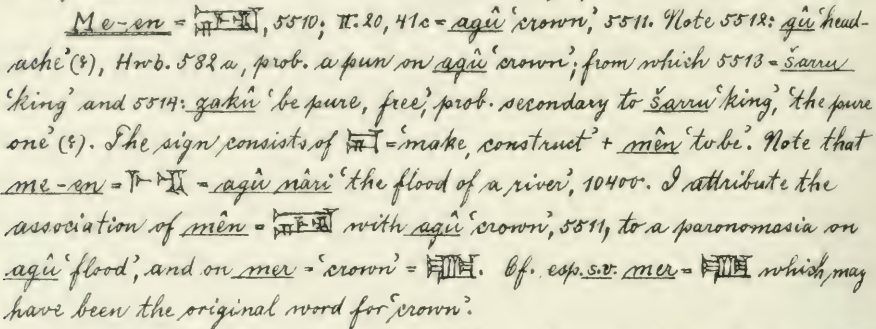 Me-en = , 5510; II. 20, 41c = agû 'crown', 5511. Note 5512: gû 'head-
ache' (?), Hwb. 582 a, prob. a pun on agû 'crown'; from which 5513 = šarru
'king' and 5514: zakû 'be pure, free', prob. secondary to šarru 'king', 'the pure
one' (?). The sign consists of = 'make, construct' + mên 'to be'. Note that
me-en = 𒈨𒂗 = agû nâri 'the flood of a river', 10400. I attribute the
association of mên = with agû 'crown', 5511, to a paronomasia on
agû 'flood', and on mer = 'crown' = . Cf. esp. s.v. mer = which may
have been the original word for 'crown'.